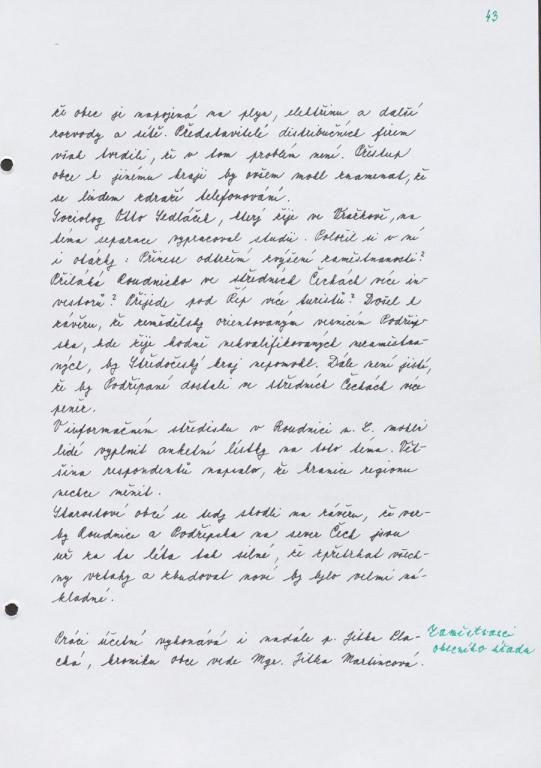 43
že obec je napojená na plyn, elektřinu a další
rozvody a sítě. Představitelé distribučních firem
však tvrdili, že v tom problém není. Přístup
obce k jinému kraji by ovšem mohl znamenat, že
se lidem zdraží telefonování.
Sociolog Otto Sedláček, který žije ve Vražkově, na
téma separace vypracoval studii. Položil si v ní
i otázky: Přinese odtržení zvýšení zaměstnanosti?
Přiláká Roudnicko ve středních Čechách více in-
vestorů? Přijede pod Říp více turistů? Došel k
závěru, že zemědělsky orientovaným vesnicím Podřip-
ska, kde žije hodně nekvalifikovaných nezaměstna-
ných, by Středočeský kraj nepomohl. Dále není jisté,
že by Podřipané dostali ve středních Čechách více
peněz.
V informačním středisku v Roudnici n. L. mohli
lidé vyplnit anketní lístky na toto téma. Vět-
šina respondentů napsalo, že hranice regionu
nechce měnit.
Starostové obcí se tedy shodli na závěru, že vaz-
by Roudnice a Podřipska na sever Čech jsou
už za ta léta tak silné, že zpřetrhat všech-
ny vztahy a zbudovat nové by bylo velmi ná-
kladné.
Práci účetní vykonává i nadále p. Jitka Pla-
cká, kroniku obce vede Mgr. Jitka Martincová.
Zaměstnanci
obecního úřadu